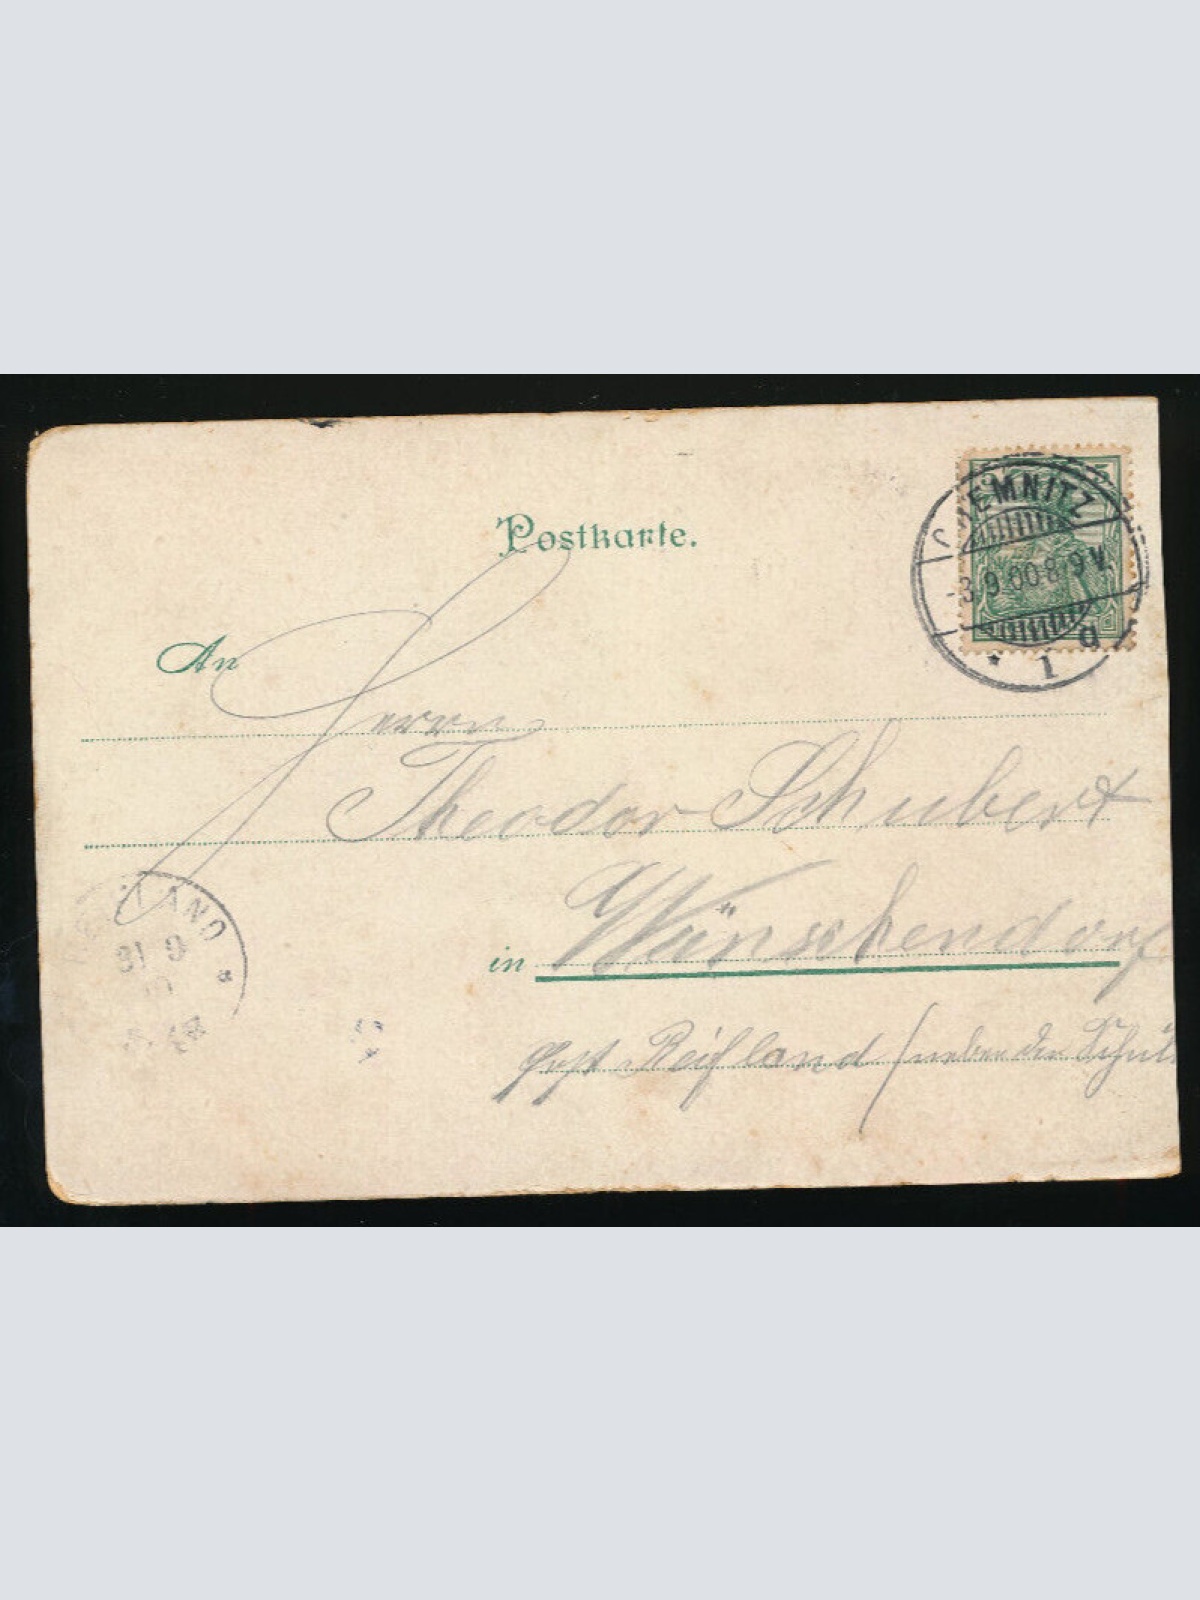 Postkarte.
CHEMNITZ
-3.9.00.8-9V.
* 1 g
An
Herrn
Theodor Schubert
in Wünschendorf
Post Reifland (neben der Schule